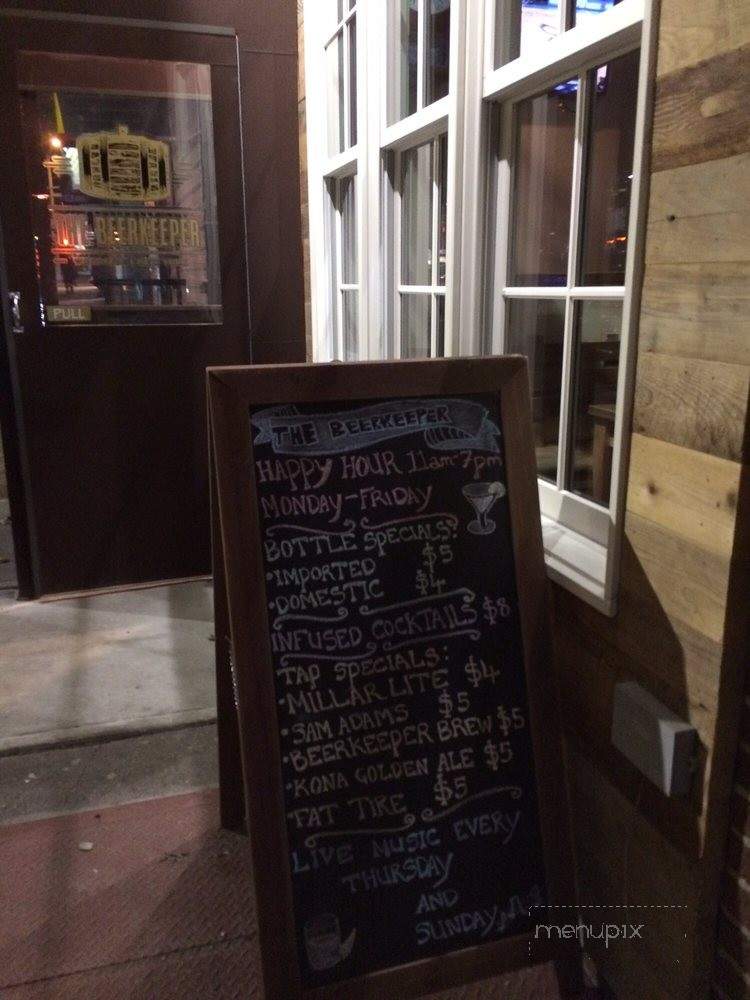 BEERKEEPER
PULL
THE BEERKEEPER
HAPPY HOUR 11am-7pm
MONDAY-FRIDAY
BOTTLE SPECIALS:
•IMPORTED $5
•DOMESTIC $4
INFUSED COCKTAILS $8
TAP SPECIALS:
•MILLAR LITE $4
•SAM ADAMS $5
•BEERKEEPER BREW $5
•KONA GOLDEN ALE $5
FAT TIRE $5
LIVE MUSIC EVERY
THURSDAY
AND
SUNDAY
menupix